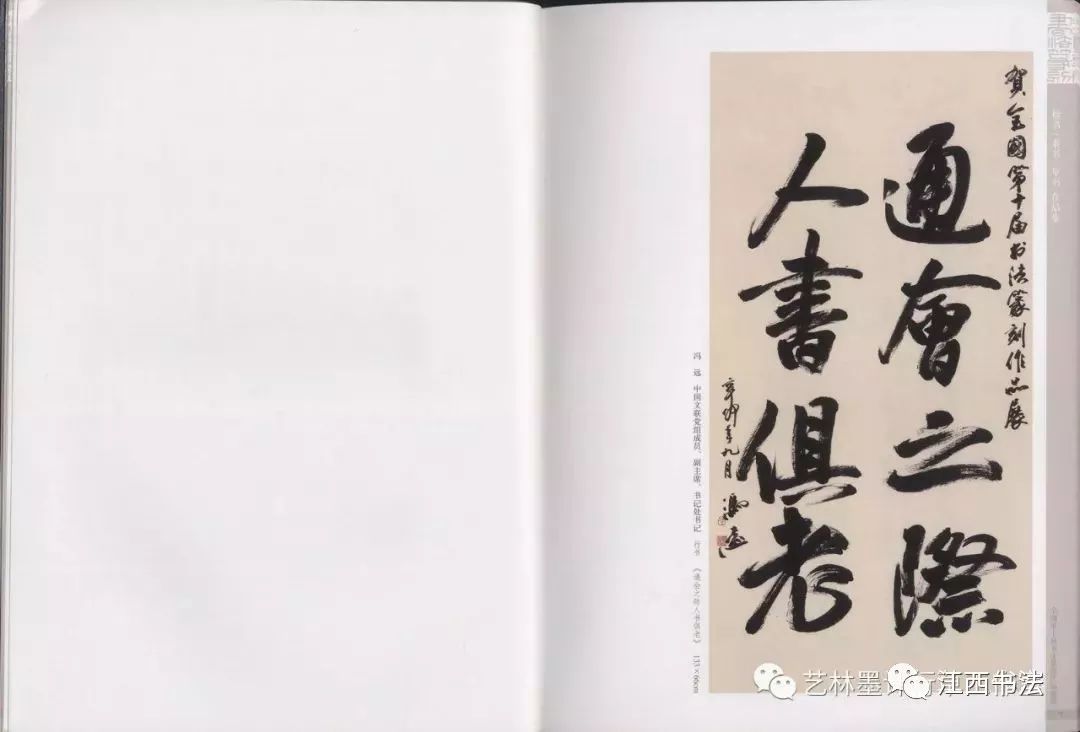 賀全國第十届书法篆刻作品展
通會之際
人書俱老
辛卯年九月 馮遠
冯 远 中国文联党组成员、副主席、书记处书记 行书 《通会之际人书俱老》 133×66cm
艺林墨
江西书法